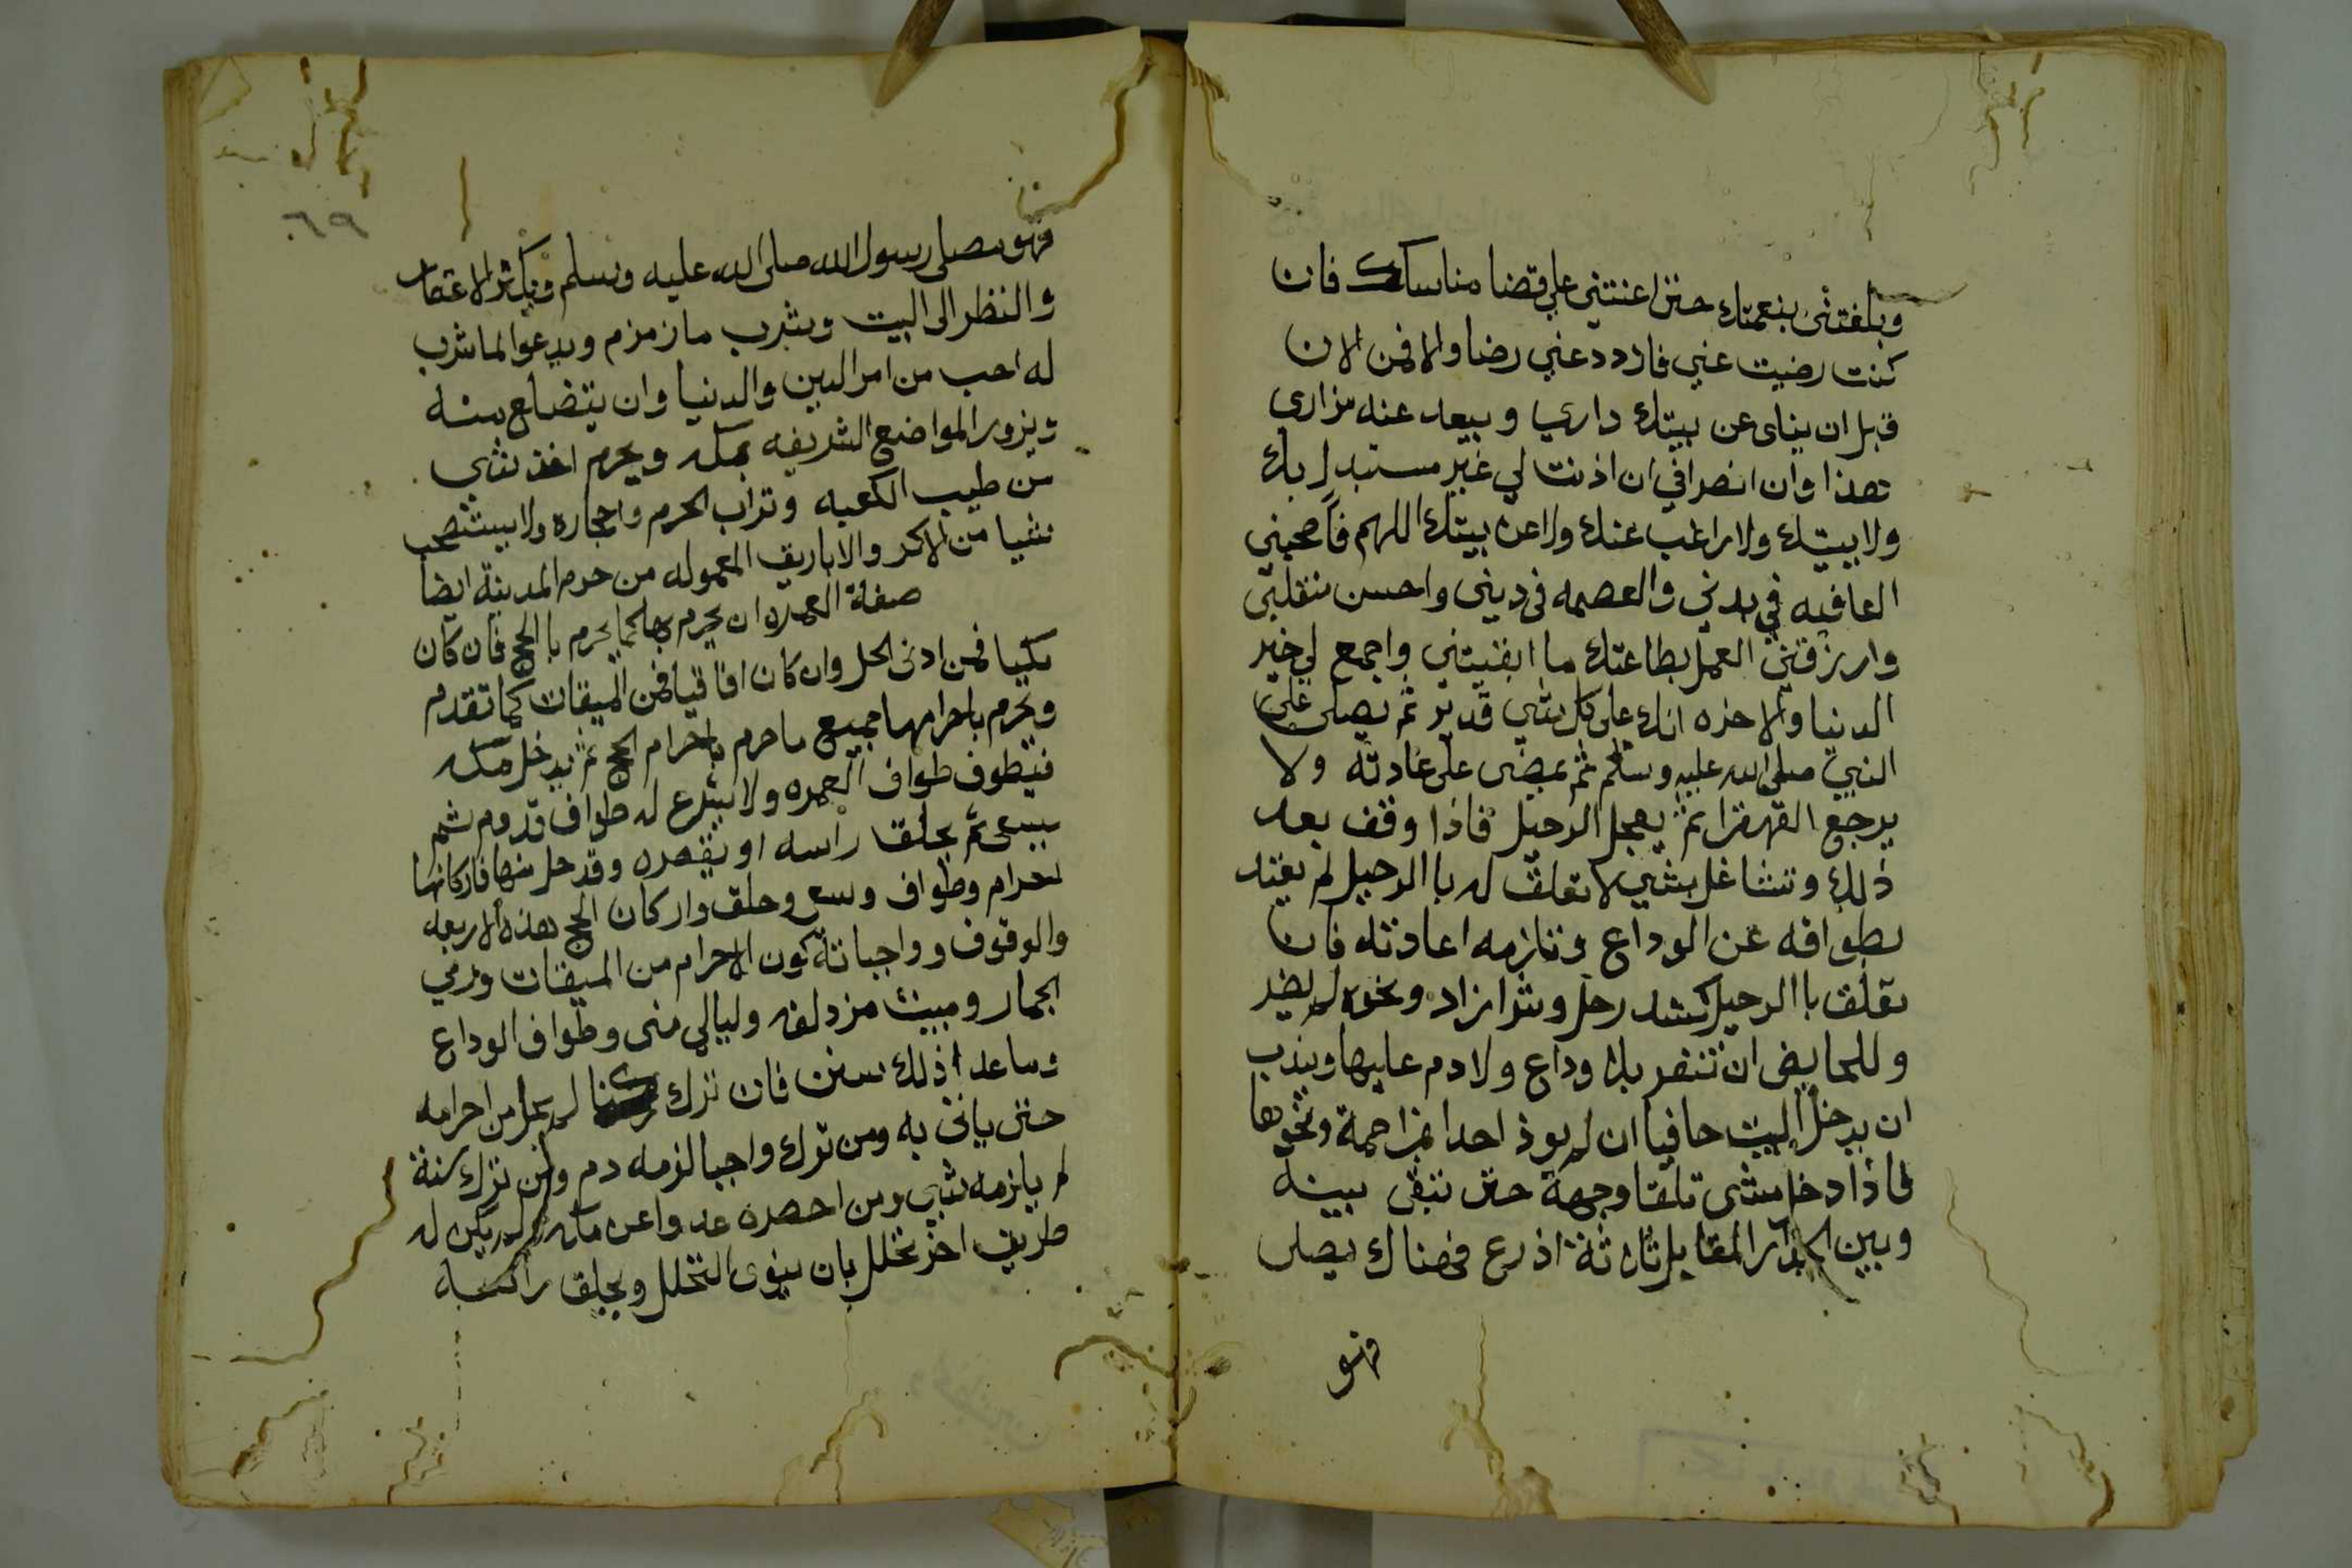 وبلغتني بنعمتك حتى اعنتني علي قضا مناسكك فان
كنت رضيت عني فازدد عني رضا والا فمن الان
قبل ان يناى عن بيتك داري ويبعد عنه مزاري
هذا اوان انصرافي ان اذنت لي غير مستبدل بك
ولا ببيتك ولا راغب عنك ولا عن بيتك اللهم فاصحبني
العافيه في بدني والعصمه في ديني واحسن منقلبي
وارزقني العمل بطاعتك ما ابقيتني واجمع لي خير
الدنيا والاخره انك على كل شي قدير ثم يصلى على
النبي صلى الله عليه وسلم ثم يمضى على عادته ولا
يرجع القهقرا ثم يعجل الرحيل فاذا وقف بعد
ذلك وتشاغل بشي لا تعلق له باالرحيل لم يعتد
بطوافه عن الوداع وتلزمه اعادته فان
تعلق باالرحيل كشد رحل وشرا زاد ونحوه لم يضر
وللحايض ان تنفر بلا وداع ولا دم عليها ويندب
ان يدخل البيت حافيا ان لم يوذ احدا بمزاحمة ونحوها
فاذا دخل مشى تلقا وجهه حتى تبقى بينه
وبين الجدار المقابل ثلاثة اذرع فهناك يصلى
فهو
٦٩
فهو مصلى رسول الله صلى الله عليه وسلم ويكثر الاعتمار
والنظر الى البيت ويشرب ما زمزم ويدعوا لما شرب
له احب من امر الدين والدنيا وان يتضلع منه
ويزور المواضع الشريفه بمكه ويحرم اخذ شي
من طيب الكعبه وتراب الحرم واحجاره ولا يستصحب
شيا من الاكر والاباريق المعموله من حرم المدينة ايضا
صفة العمره ان يحرم بها كما يحرم باالحج فان كان
مكيا فمن ادنى الحل وان كان افاقيا فمن الميقات كما تقدم
ويحرم باحرامها جميع ما حرم باحرام الحج ثم يدخل مكه
فيطوف طواف العمره ولا يشرع له طواف قدوم ثم
يسعى ثم يحلق راسه او يقصره وقد حل منها فاركانها
احرام وطواف وسعي وحلق واركان الحج هذه الاربعه
والوقوف وواجباته كون الاحرام من الميقات ورمي
الجمار ومبيت مزدلفه وليالي منى وطواف الوداع
وما عدا ذلك سنن فان ترك ركنا لم يحل من احرامه
حتى ياتى به ومن ترك واجبا لزمه دم ومن ترك سنة
لم يلزمه شي ومن احصره عدوا عن مكه ولم يكن له
طريق اخر تحلل بان ينوى التحلل ويحلق راسه